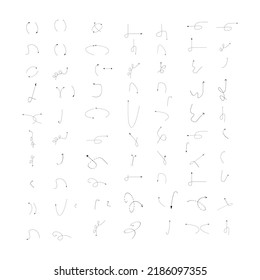 shutterstock.com · 2186097355